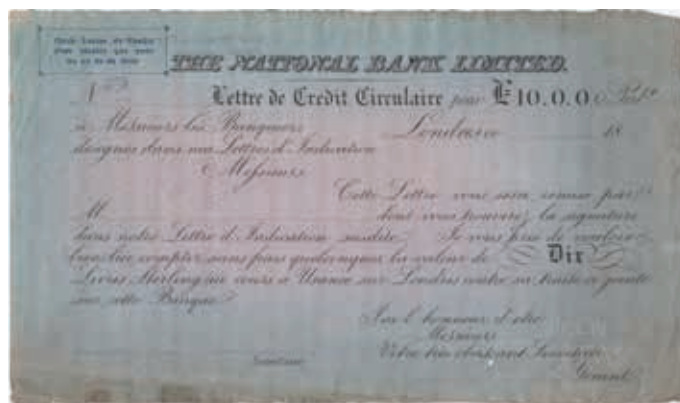 Cette Lettre de Crédit
THE NATIONAL BANK LIMITED.
N
Lettre de Credit Circulaire pour £10.0.0 Stg
à Messieurs les Banquiers Londres 18
désignés dans ma Lettre d'Indication
Messieurs
Cette Lettre vous sera remise par
M dont vous trouverez la signature
dans notre Lettre d'Indication susdite. Je vous prie de vouloir
bien lui compter sans frais quelconques la valeur de Dix
Livres Sterling au cours à Usance sur Londres contre sa traite ci jointe
sur cette Banque
J'ai l'honneur d'être
Messieurs
Votre très obéissant Serviteur
Gérant